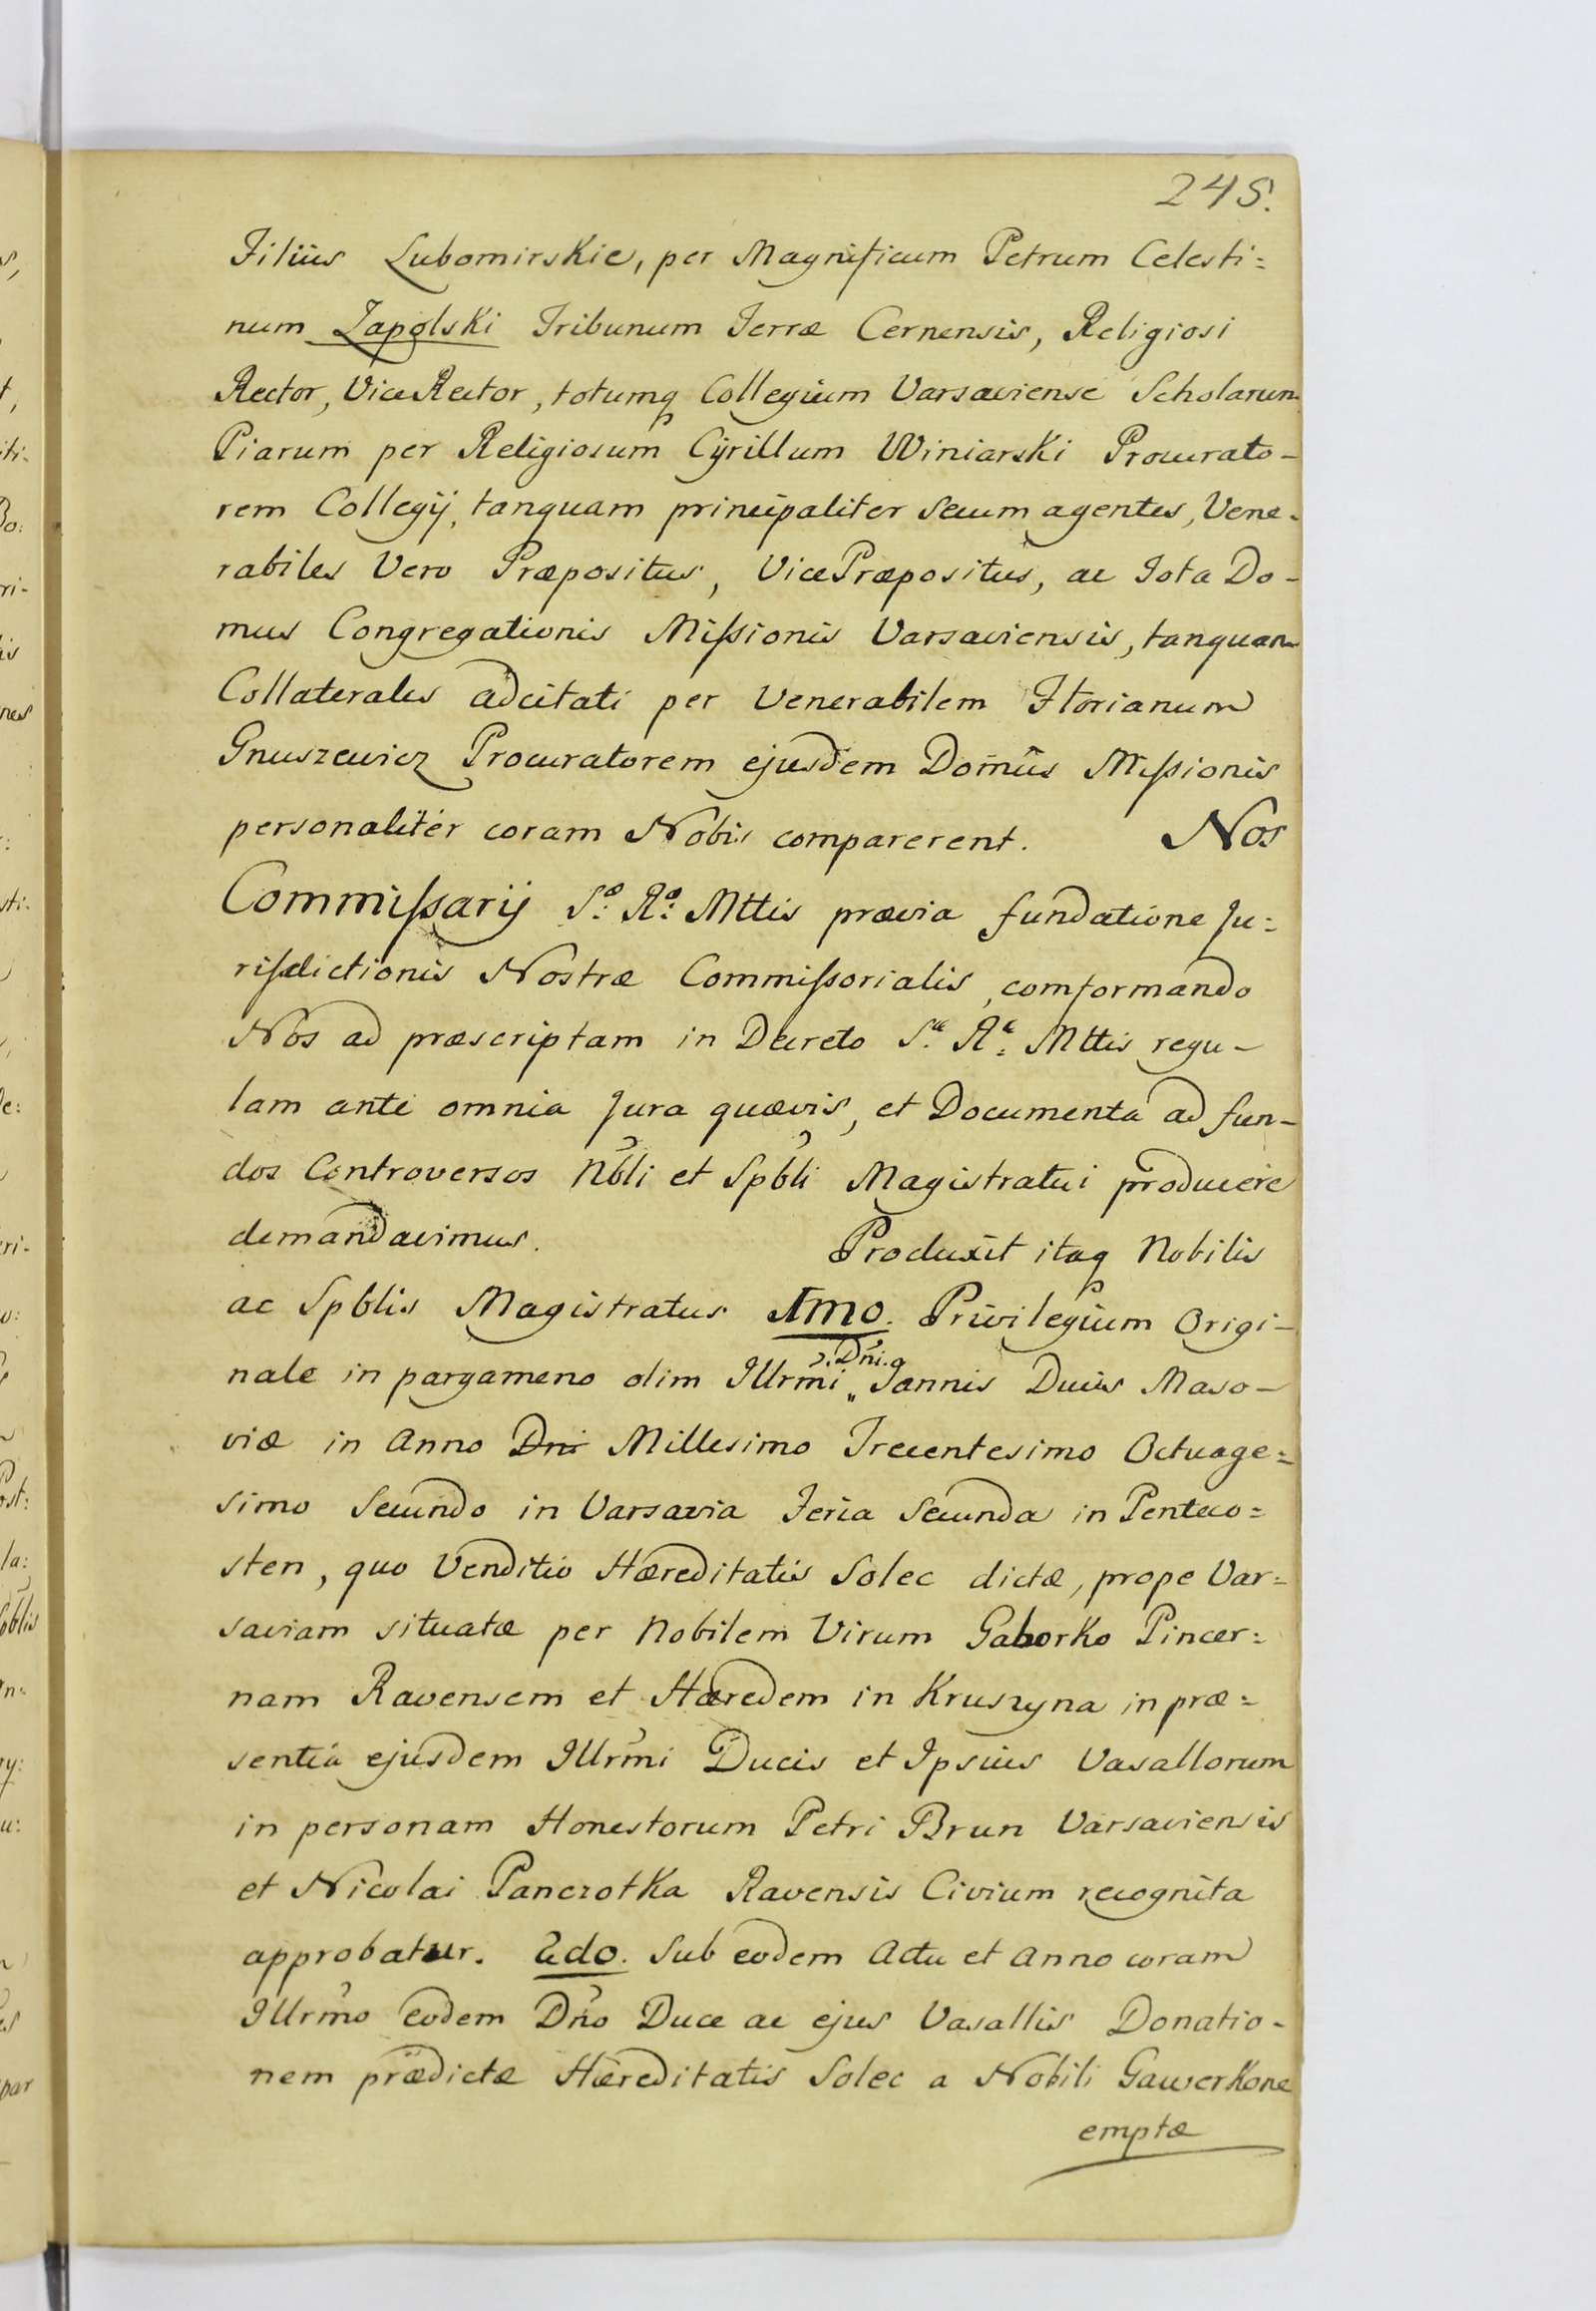 245.
Filius Lubomirskie, per Magnificum Petrum Celesti=
num Zapolski Tribunum Terræ Cernensis, Religiosi
Rector, ViceRector, totumq Collegium Varsaviense Scholarum
Piarum per Religiosum Cÿrillum Winiarski Procurato-
rem Collegÿ, tanquam principaliter secum agentes, Vene-
rabiles Vero Præpositus, VicePræpositus, ac Tota Do-
mus Congregationis Mißionis Varsaviensis, tanquam
Collaterales adcitati per Venerabilem Florianum
Gnuszewicz Procuratorem ejusdem Domûs Mißionis
personaliter coram Nobis comparerent. Nos
Commißarij S: R: Mttis prævia fundatione Ju=
risdictionis Nostræ Commißorialis, comformando
Nos ad præscriptam in Decreto S. R: Mttis regu-
lam ante omnia Jura quævis, et Documenta ad fun-
dos Controversos Nbli et Spbli Magistratui producere
demandavimus. Produxit itaq Nobilis
ac Spblis Magistratus Imo. Privilegium Origi-
nale in pargameno olim Illrmi Dni. Joannis Ducis Maso-
viæ in Anno Dni Millesimo Trecentesimo Octuage=
simo Secundo in Varsavia Feria Secunda in Penteco=
sten, quo Venditio Hæreditatis Solec dictæ, prope Var=
saviam situatæ per Nobilem Virum Gaborko Pincer=
nam Ravensem et Hæredem in Kruszyna in præ=
sentia ejusdem Illrmi Ducis et Ipsius Vasallorum
in personam Honestorum Petri Brun Varsaviensis
et Nicolai Panczotka Ravensis Civium recognita
approbatur. 2do. Sub eodem Actu et Anno coram
Illrmo eodem Dno Duce ac ejus Vasallis Donatio-
nem prædictæ Hæreditatis Solec a Nobili Gawerkone
emptæ